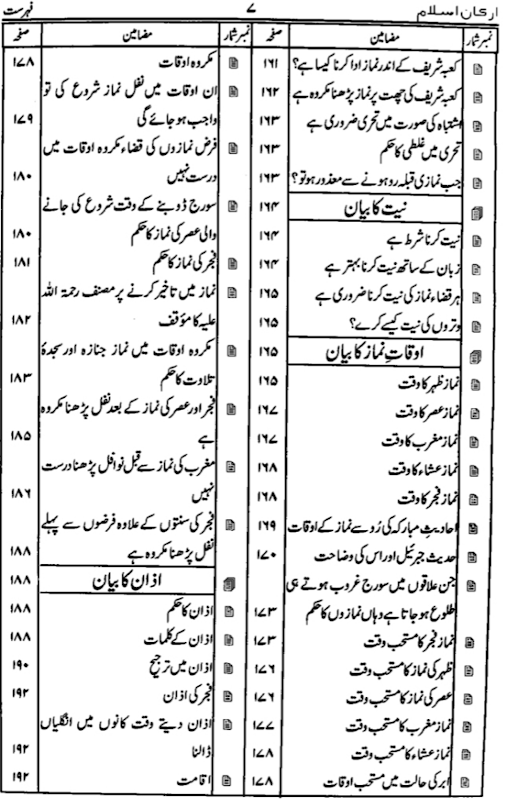 ارکان اسلام ۷ فہرست
نمبر شمار مضامین صفحہ
کعبہ شریف کے اندر نماز ادا کرنا کیسا ہے؟ ۱۶۱
کعبہ شریف کی چھت پر نماز پڑھنا مکروہ ہے ۱۶۲
اشتباہ کی صورت میں تحری ضروری ہے ۱۶۳
تحری میں غلطی کا حکم ۱۶۳
جب نمازی قبلہ رو ہونے سے معذور ہو تو؟ ۱۶۳
نیت کا بیان ۱۶۴
نیت کرنا شرط ہے ۱۶۴
زبان کے ساتھ نیت کرنا بہتر ہے ۱۶۴
ہر قضاء نماز کی نیت کرنا ضروری ہے ۱۶۵
وتروں کی نیت کیسے کرے؟ ۱۶۵
اوقاتِ نماز کا بیان ۱۶۵
نماز ظہر کا وقت ۱۶۵
نماز عصر کا وقت ۱۶۷
نماز مغرب کا وقت ۱۶۷
نماز عشاء کا وقت ۱۶۸
نماز فجر کا وقت ۱۶۸
احادیثِ مبارکہ کی رُو سے نماز کے اوقات ۱۶۹
حدیث جبرئیل اور اس کی وضاحت ۱۷۰
جن علاقوں میں سورج غروب ہوتے ہی
طلوع ہو جاتا ہے وہاں نمازوں کا حکم ۱۷۳
نماز فجر کا مستحب وقت ۱۷۳
ظہر کی نماز کا مستحب وقت ۱۷۶
عصر کی نماز کا مستحب وقت ۱۷۶
نماز مغرب کا مستحب وقت ۱۷۷
نماز عشاء کا مستحب وقت ۱۷۸
ابر کی حالت میں مستحب اوقات ۱۷۸
نمبر شمار مضامین صفحہ
مکروہ اوقات ۱۷۸
ان اوقات میں نفل نماز شروع کی تو
واجب ہو جائے گی ۱۷۹
فرض نمازوں کی قضاء مکروہ اوقات میں
درست نہیں ۱۸۰
سورج ڈوبنے کے وقت شروع کی جانے
والی عصر کی نماز کا حکم ۱۸۰
فجر کی نماز کا حکم ۱۸۱
نماز میں تاخیر کرنے پر مصنف رحمۃ اللہ
علیہ کا مؤقف ۱۸۲
مکروہ اوقات میں نماز جنازہ اور سجدۂ
تلاوت کا حکم ۱۸۳
فجر اور عصر کی نماز کے بعد نفل پڑھنا مکروہ
ہے ۱۸۵
مغرب کی نماز سے قبل نوافل پڑھنا درست
نہیں ۱۸۶
فجر کی سنتوں کے علاوہ فرضوں سے پہلے
نفل پڑھنا مکروہ ہے ۱۸۸
اذان کا بیان ۱۸۸
اذان کا حکم ۱۸۸
اذان کے کلمات ۱۸۸
اذان میں ترجیح ۱۹۰
فجر کی اذان ۱۹۲
اذان دیتے وقت کانوں میں انگلیاں
ڈالنا ۱۹۲
اقامت ۱۹۲